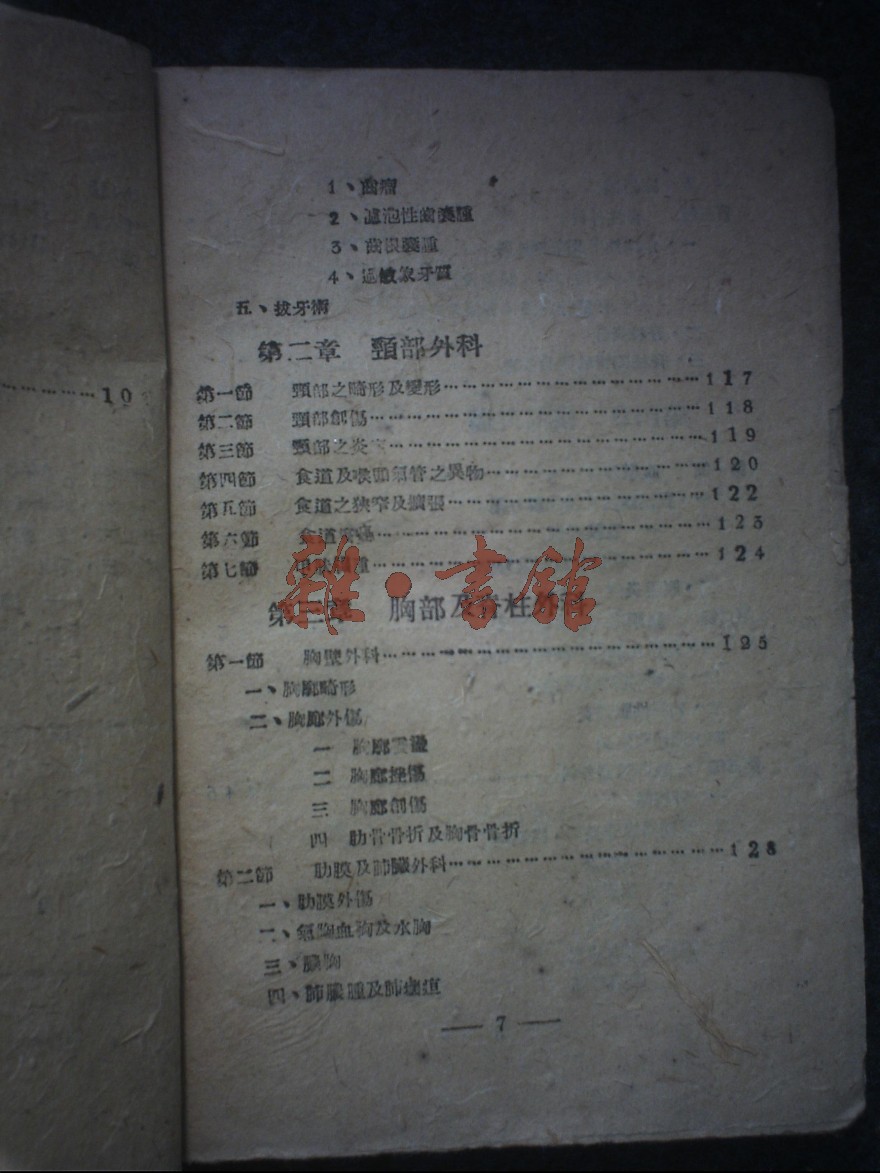 ……………10
1、齒瘤
2、濾泡性齒囊腫
3、齒根囊腫
4、過敏象牙質
五、拔牙術
第二章 頸部外科
第一節 頸部之畸形及變形……………………………117
第二節 頸部創傷……………………………118
第三節 頸部之炎……………………………119
第四節 食道及喉頭氣管之異物……………………………120
第五節 食道之狹窄及擴張……………………………122
第六節 食道……………………………123
第七節 甲狀腺腫……………………………124
第三章 胸部及脊柱外科
第一節 胸壁外科……………………………125
一、胸廓畸形
二、胸廓外傷
一 胸廓震盪
二 胸廓挫傷
三 胸廓創傷
四 肋骨骨折及胸骨骨折
第二節 肋膜及肺臟外科……………………………128
一、肋膜外傷
二、氣胸血胸及水胸
三、膿胸
四、肺膿腫及肺壞疽
— 7 —
雜·書館